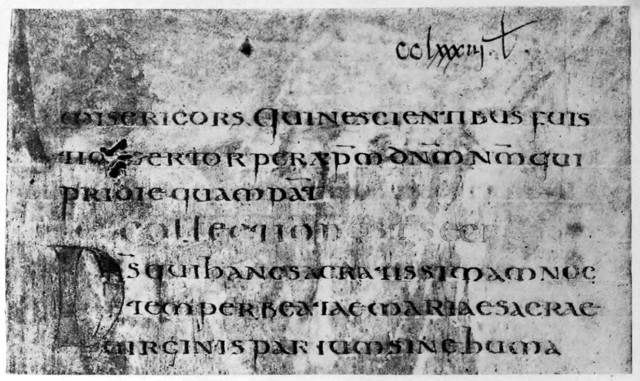 cclxxxiij. t
misericors. Qui nescientibus fuis
per xp̄m dn̄m nm̄ qui
pridie quam pāt
collectio post
Ds̄ qui hanc sacratissimam noc
tem per beatae mariae sacrae
uirginis partum sine huma